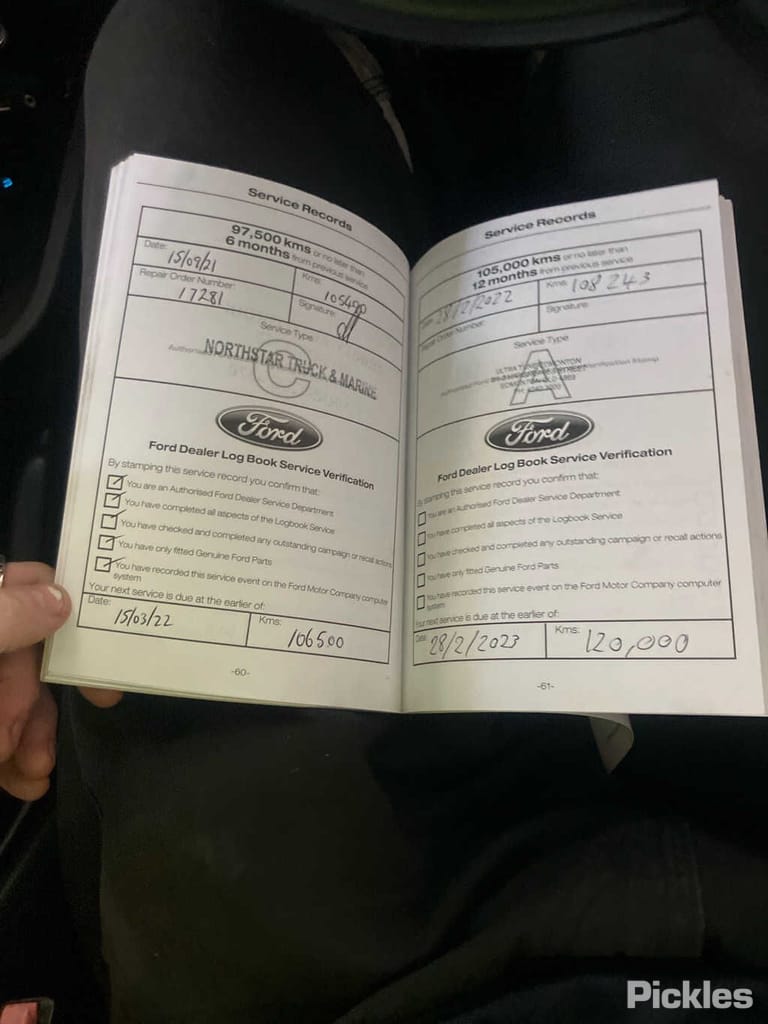 Service Records
97,500 kms or no later than
6 months from previous service
Date:
15/09/21
Kms:
105490
Repair Order Number:
17281
Signature:
Service Type
C
NORTHSTAR TRUCK & MARINE
Ford
Ford Dealer Log Book Service Verification
By stamping this service record you confirm that:
You are an Authorised Ford Dealer Service Department
You have completed all aspects of the Logbook Service
You have checked and completed any outstanding campaign or recall actions
You have only fitted Genuine Ford Parts
You have recorded this service event on the Ford Motor Company computer
system
Your next service is due at the earlier of:
Date:
15/03/22
Kms:
106500
-60-
Service Records
105,000 kms or no later than
12 months from previous service
28/2/2022
Kms:
108 243
Repair Order Number:
Signature:
Service Type
A
ULTRA TUNE EDMONTON
Ford
Ford Dealer Log Book Service Verification
By stamping this service record you confirm that:
You are an Authorised Ford Dealer Service Department
You have completed all aspects of the Logbook Service
You have checked and completed any outstanding campaign or recall actions
You have only fitted Genuine Ford Parts
You have recorded this service event on the Ford Motor Company computer
system
Your next service is due at the earlier of:
Date:
28/2/2023
Kms:
120,000
-61-
Pickles